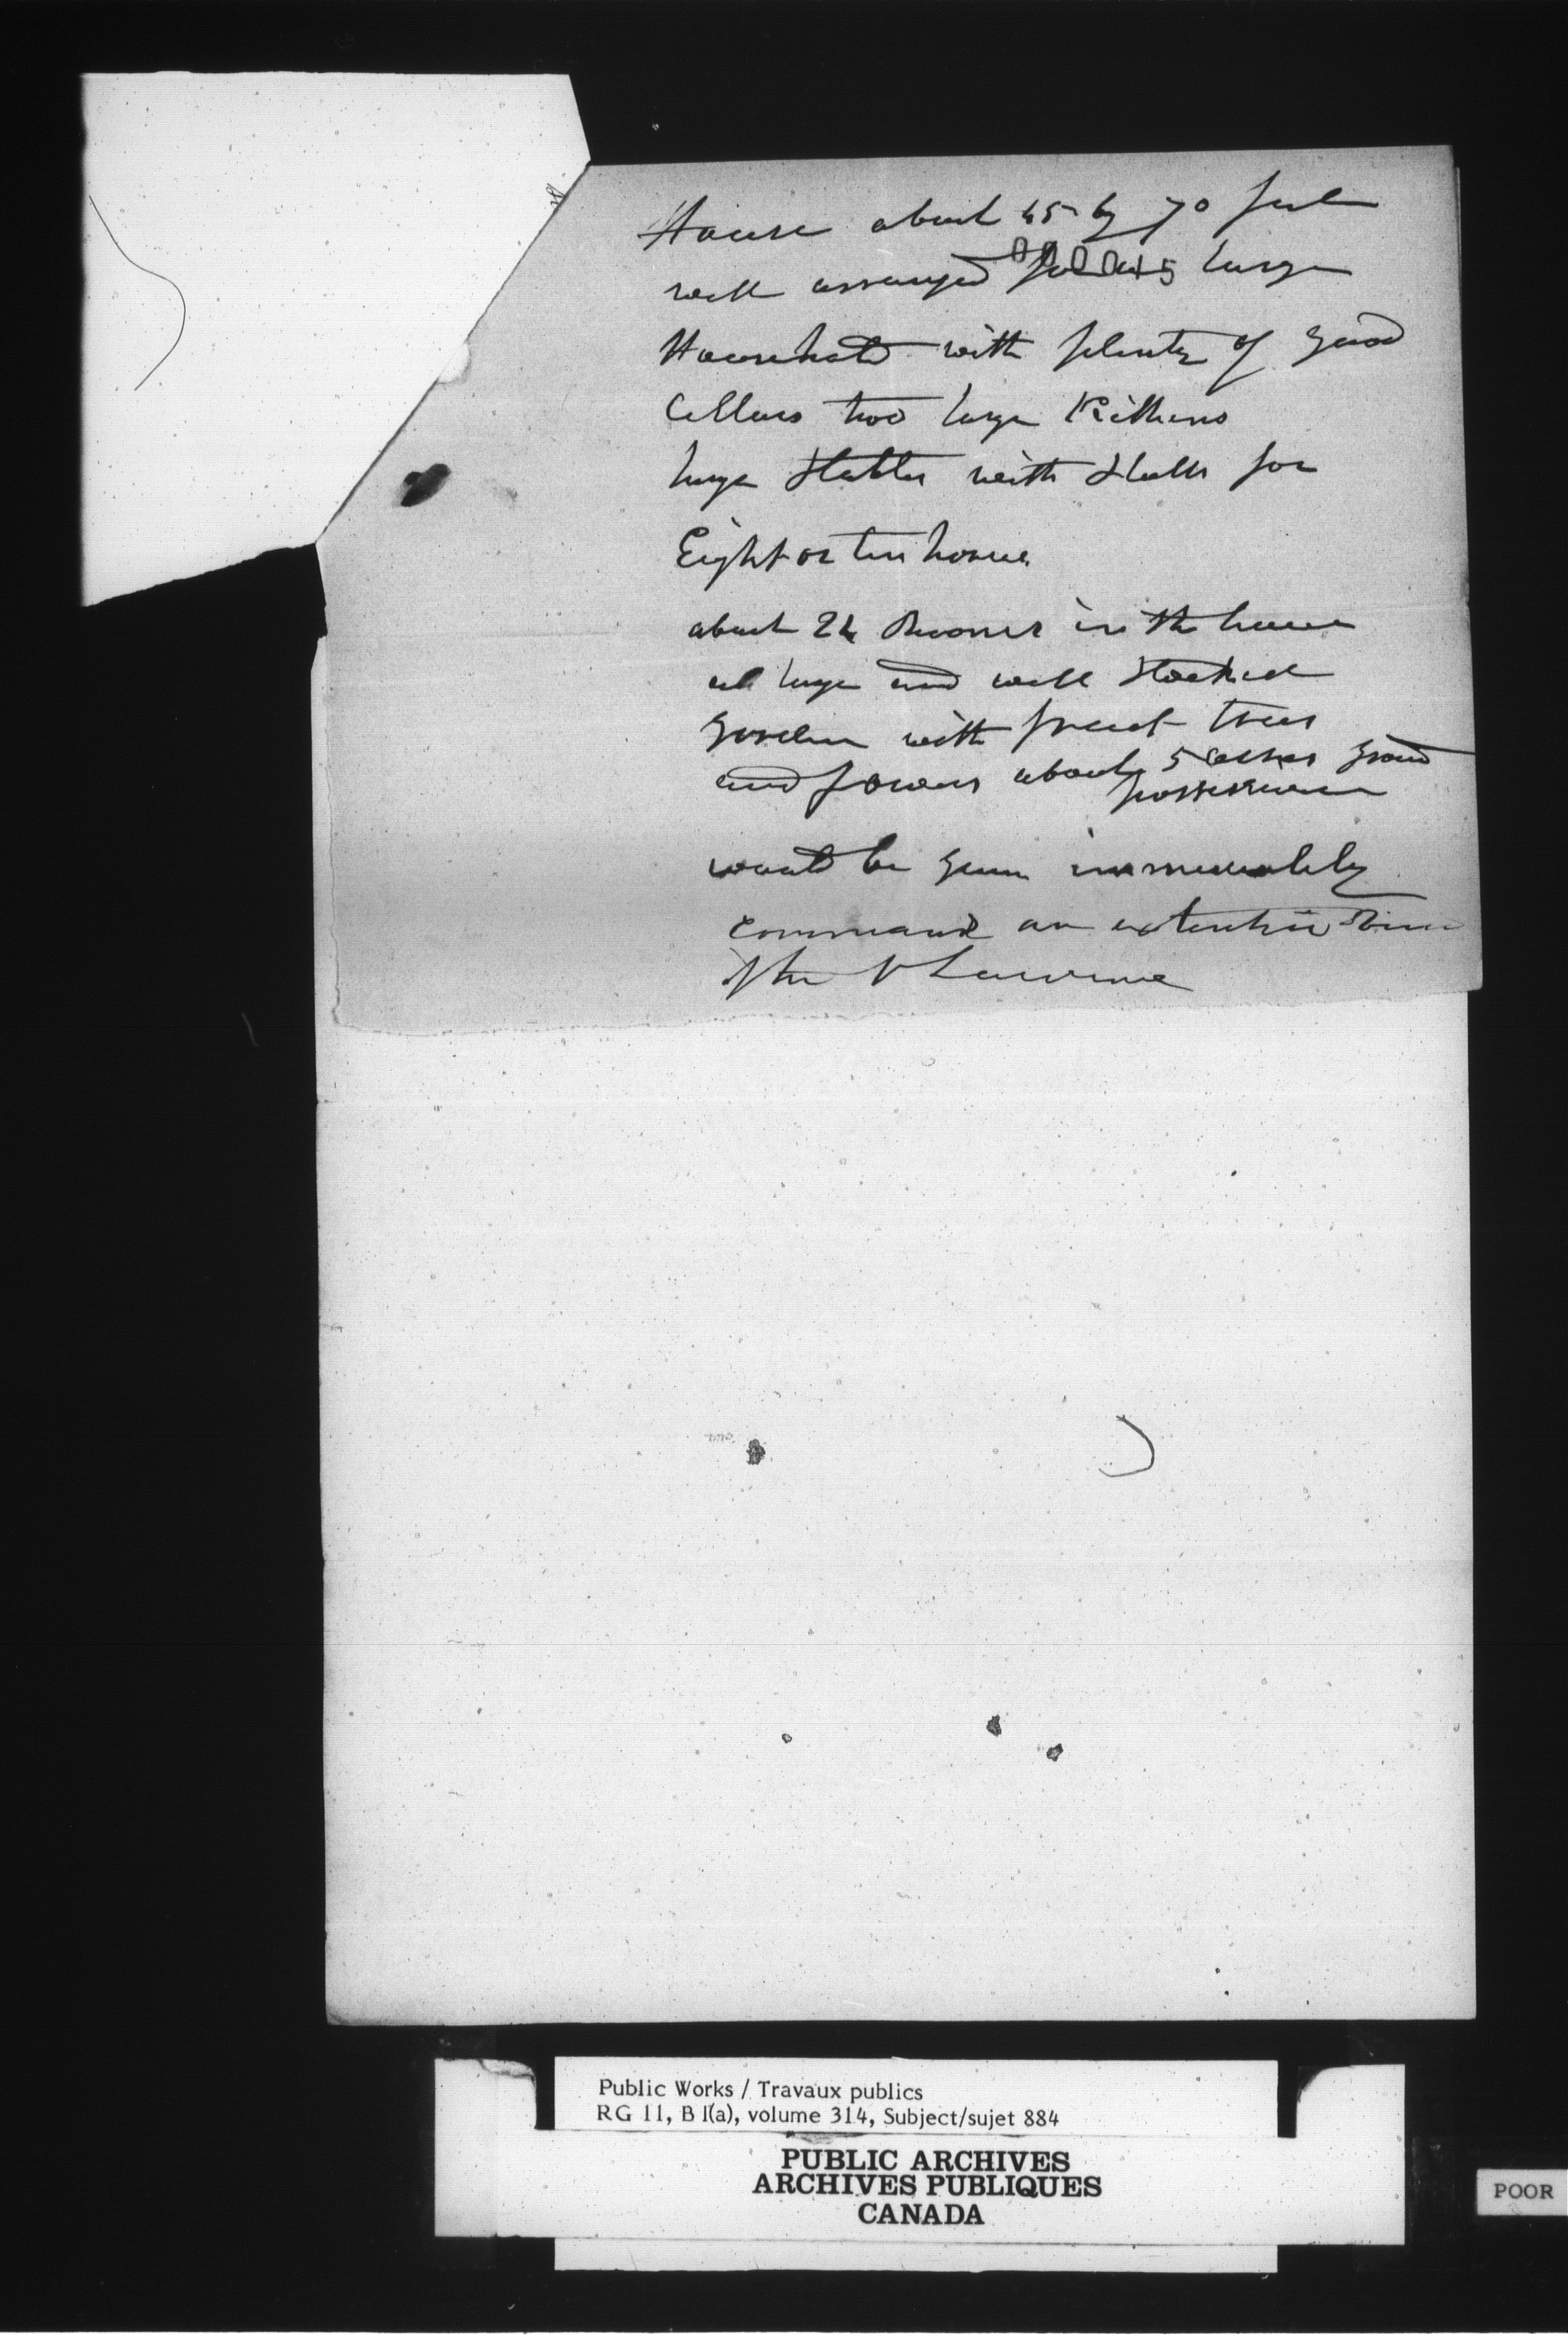 House about 45 by 70 feet
well arranged for large
000045
Household with plenty of good
Cellars two large Kithens
large Stables with Stalls for
Eight or ten horses
about 24 Rooms in the house
all large and well Stocked
Garden with fruit trees
and flowers about 5 acres ground
possession
would be given immediately
command an extentive View
of the St Lawrence
Public Works / Travaux publics
RG 11, B 1(a), volume 314, Subject/sujet 884
PUBLIC ARCHIVES
ARCHIVES PUBLIQUES
CANADA
POOR